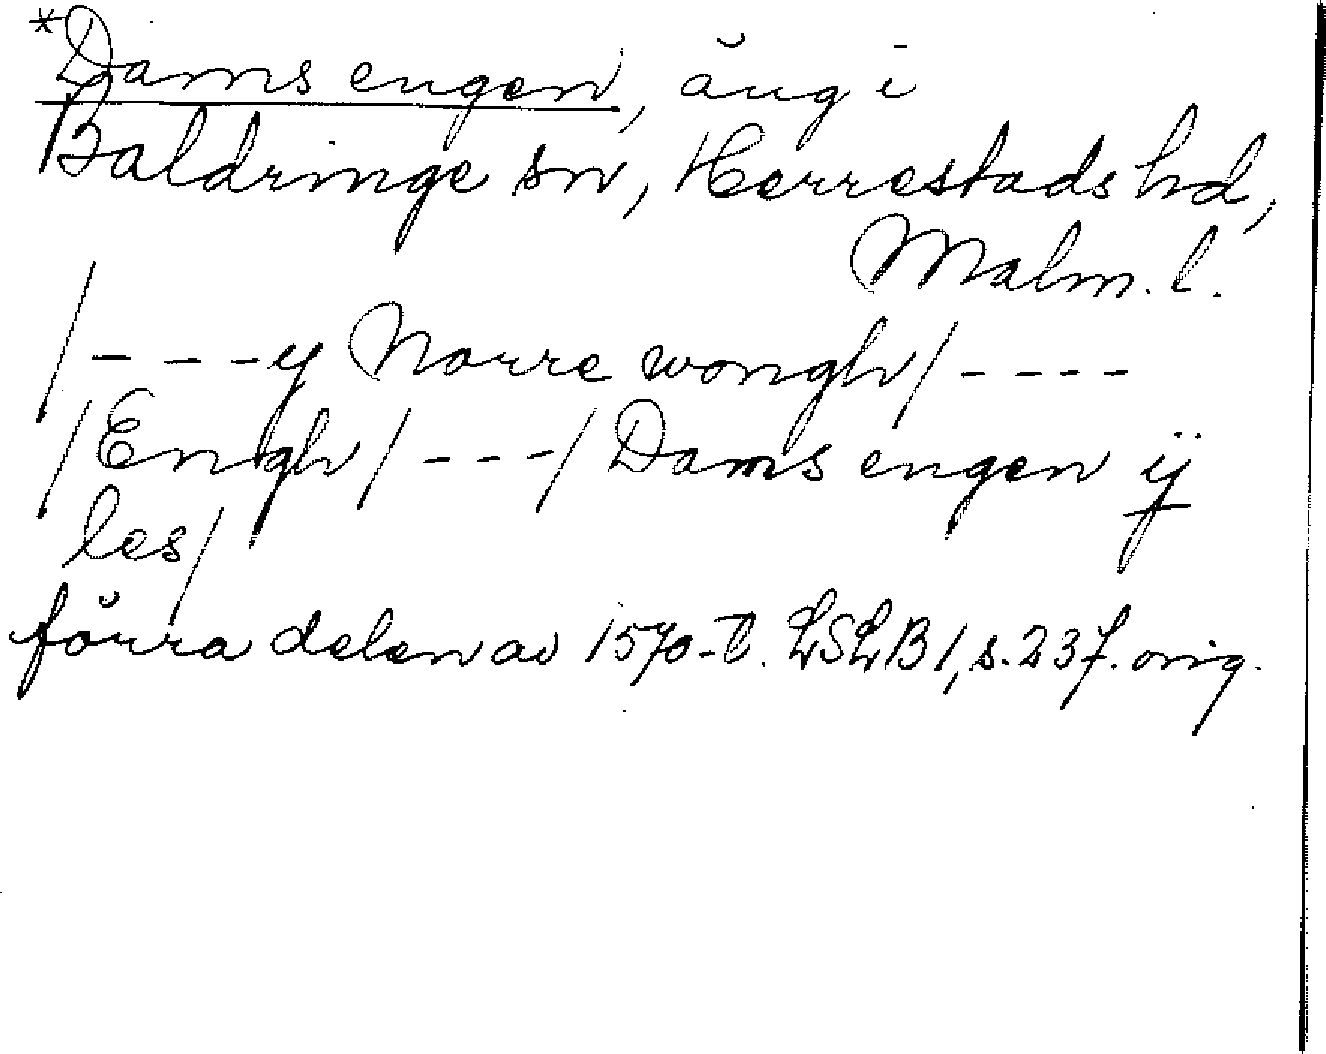 *Dams engen, äng i
Baldringe sn, Herrestads hd,
Malm. l.
/ - - - y Norre wongh / - - - -
/ Engh / - - - / Dams engen ij
les /
förra delen av 1570-t. LSLB 1, s. 237. orig.